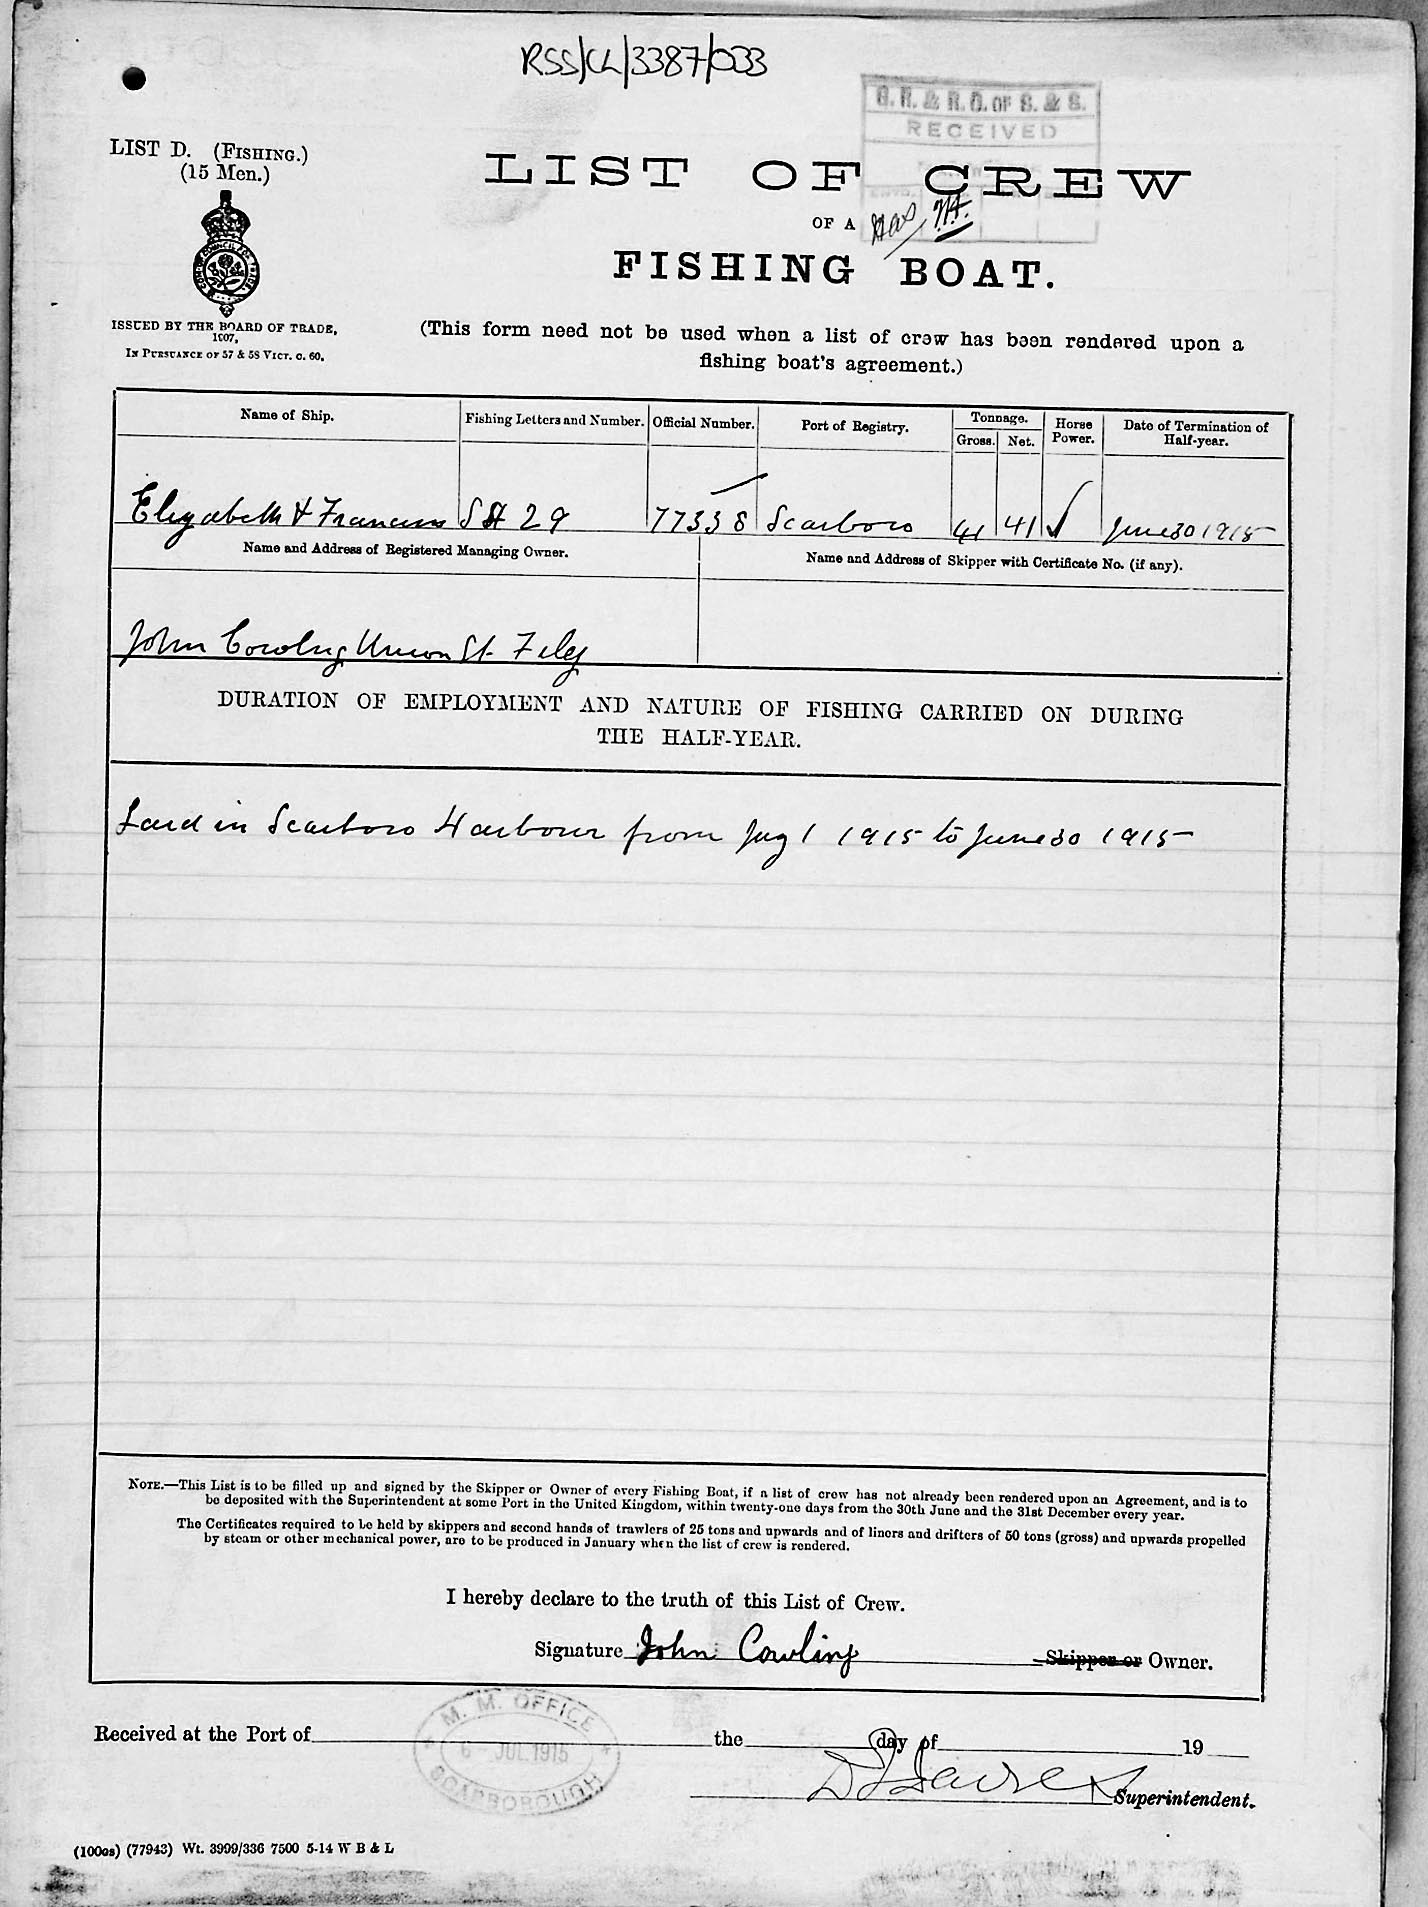 RSS/CL/3387/033
G. R. & R. O. OF S. & S.
RECEIVED
LIST D. (FISHING.)
(15 Men.)
LIST OF CREW
OF A
FISHING BOAT.
ISSUED BY THE BOARD OF TRADE,
1907,
IN PURSUANCE OF 57 & 58 VICT. C. 60.
(This form need not be used when a list of crew has been rendered upon a
fishing boat's agreement.)
Name of Ship. Fishing Letters and Number. Official Number. Port of Registry. Tonnage. Horse Power. Date of Termination of Half-year.
Gross. Net.
Elizabeth & Frances SH 29 77338 Scarboro 41 41 June 30 1915
Name and Address of Registered Managing Owner. Name and Address of Skipper with Certificate No. (if any).
John Cowling Union St. Filey
DURATION OF EMPLOYMENT AND NATURE OF FISHING CARRIED ON DURING
THE HALF-YEAR.
Laid in Scarboro Harbour from Jany 1 1915 to June 30 1915
NOTE.—This List is to be filled up and signed by the Skipper or Owner of every Fishing Boat, if a list of crew has not already been rendered upon an Agreement, and is to
be deposited with the Superintendent at some Port in the United Kingdom, within twenty-one days from the 30th June and the 31st December every year.
The Certificates required to be held by skippers and second hands of trawlers of 25 tons and upwards and of liners and drifters of 50 tons (gross) and upwards propelled
by steam or other mechanical power, are to be produced in January when the list of crew is rendered.
I hereby declare to the truth of this List of Crew.
Signature John Cowling Skipper or Owner.
M. M. OFFICE
6 - JUL 1915
SCARBOROUGH
Received at the Port of the day of 19
Superintendent.
(100as) (77943) Wt. 3999/336 7500 5-14 W B & L